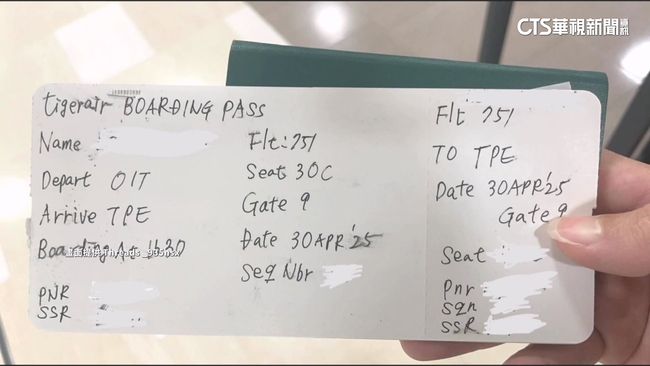 CTS華視新聞資訊
tigerair BOARDING PASS
Name
Depart OIT
Arrive TPE
Boarding At 1630
PNR
SSR
Flt: 751
Seat 30C
Gate 9
Date 30APR'25
Seq Nbr
Flt 751
TO TPE
Date 30APR'25
Gate 9
Seat
Pnr
sqn
SSR
畫面提供 Threads